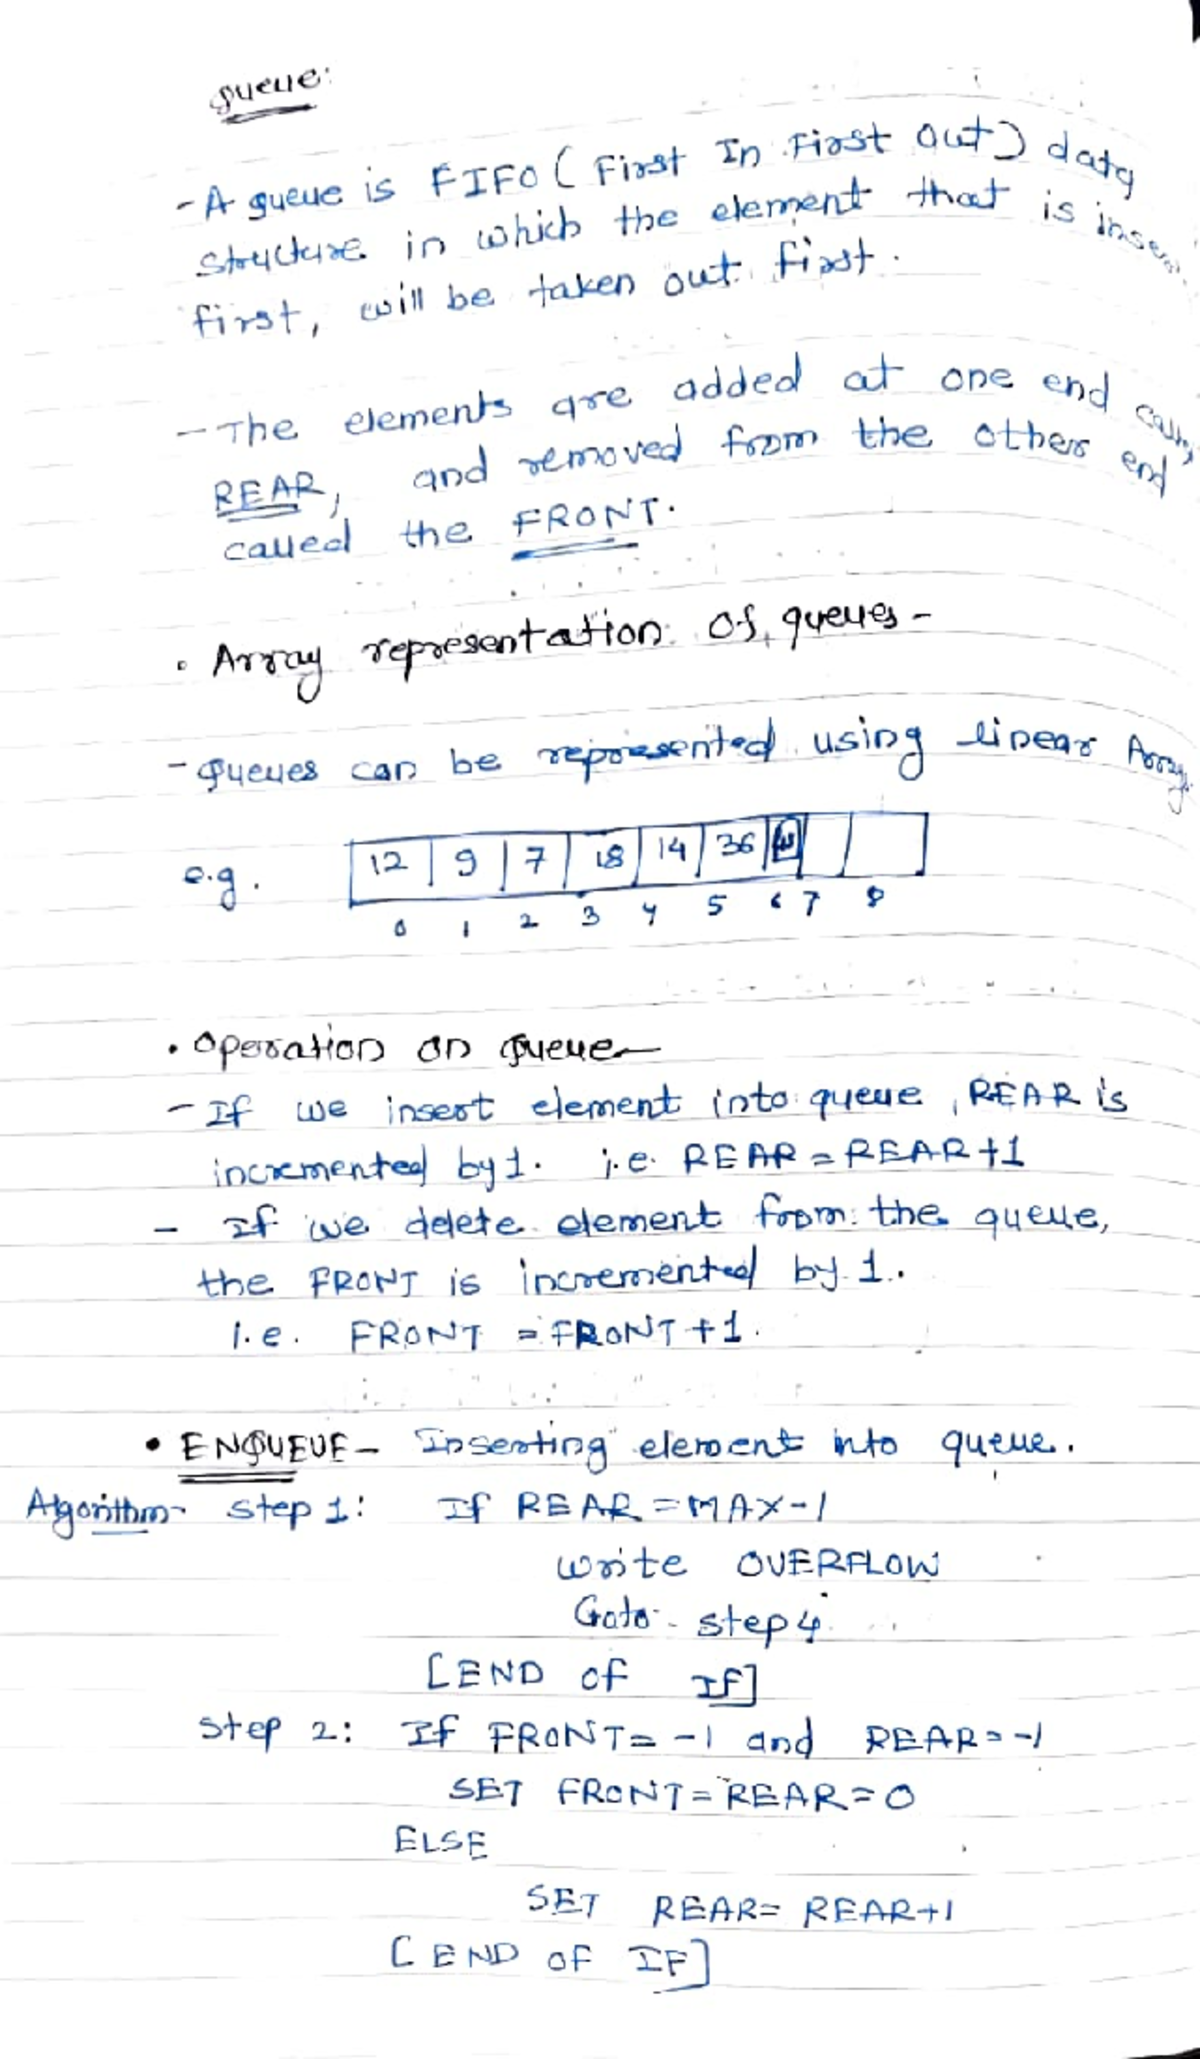 queue:
- A queue is FIFO ( First In First Out) data
structure in which the element that is
first, will be taken out first.
- The elements are added at one end
REAR, and removed from the other end
called the FRONT.
• Array representation of queues -
- Queues can be represented using linear Array.
e.g. 12 9 7 18 14 36
0 1 2 3 4 5 6 7 8
• Operation on Queue -
- If we insert element into queue, REAR is
incremented by 1. i.e. REAR = REAR +1
- If we delete element from the queue,
the FRONT is incremented by 1.
i.e. FRONT = FRONT +1.
• ENQUEUE - Inserting element into queue.
Algorithm - step 1: If REAR = MAX-1
write OVERFLOW
Goto - step 4.
[END OF IF]
step 2: If FRONT = -1 and REAR = -1
SET FRONT = REAR = 0
ELSE
SET REAR = REAR+1
[END OF IF]